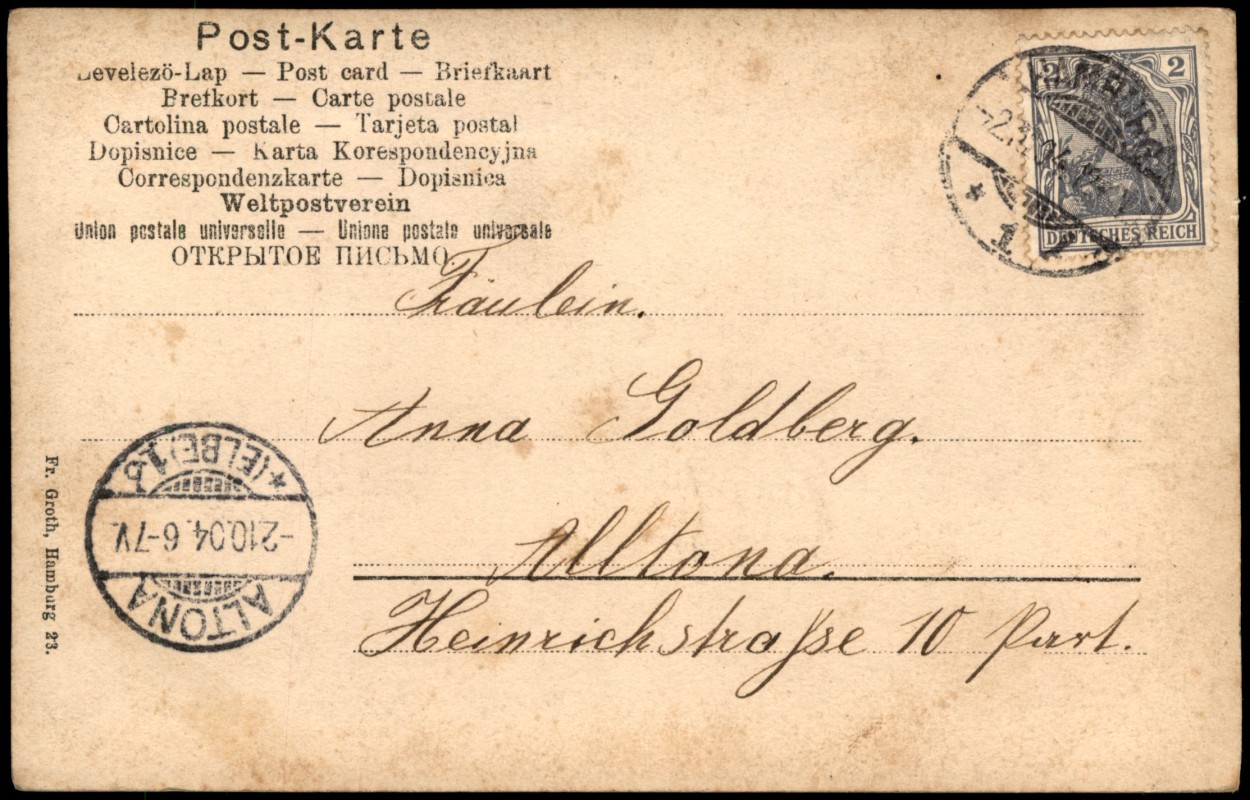 Post-Karte
Levelező-Lap — Post card — Briefkaart
Brefkort — Carte postale
Cartolina postale — Tarjeta postal
Dopisnice — Karta Korespondencyjna
Correspondenzkarte — Dopisnica
Weltpostverein
Union postale universelle — Unione postale universale
ОТКРЫТОЕ ПИСЬМО.
2 2
DEUTSCHES REICH
HAMBURG
* 1
Fräulein.
Anna Goldberg.
Alltona.
Heinrichstraße 10 Part.
ALTONA
-2.10.04. 6-7V.
* (ELBE) 1.b
Fr. Groth, Hamburg 23.